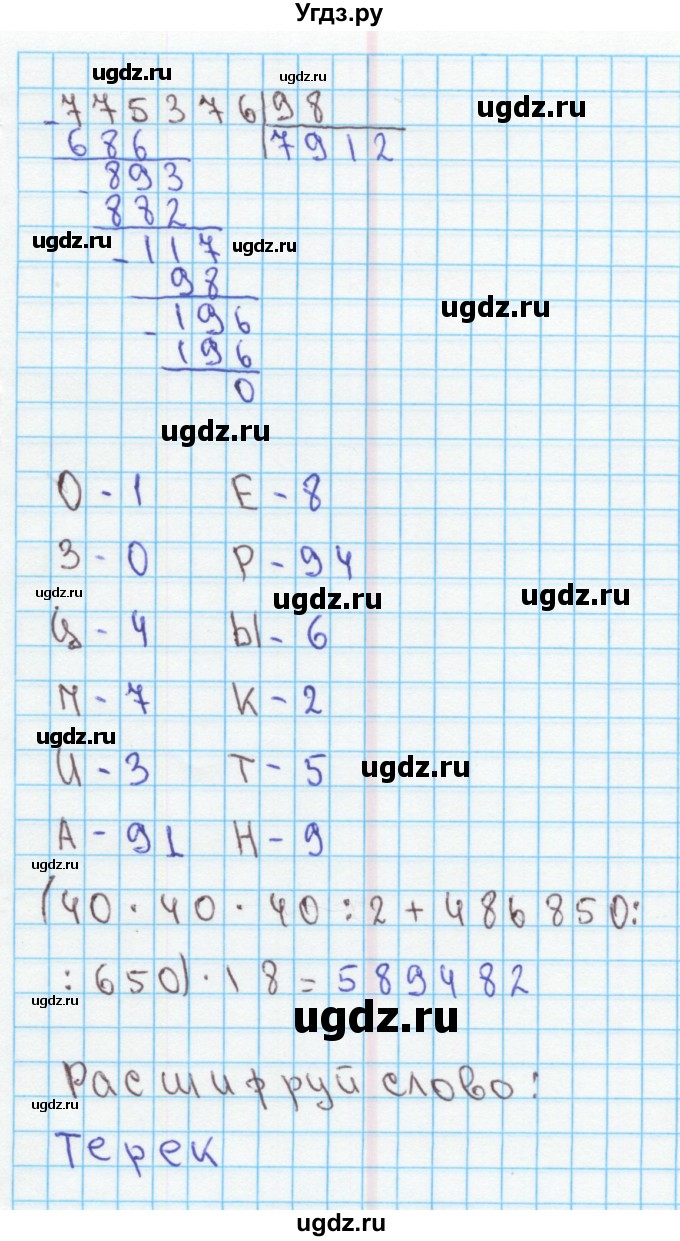 Угдз.ру
ugdz.ru ugdz.ru
775376 98 ugdz.ru
- 686 7912
- 893
882
ugdz.ru - 117 ugdz.ru
98
ugdz.ru
- 196
196
0
ugdz.ru
О - 1 Е - 8
З - 0 Р - 94
ugdz.ru ugdz.ru ugdz.ru
Ц - 4 Ы - 6
М - 7 К - 2
ugdz.ru
И - 3 Т - 5 ugdz.ru
А - 91 Н - 9
ugdz.ru
(40 · 40 · 40 : 2 + 486850 :
: 650) · 18 = 589482
ugdz.ru ugdz.ru
Расшифруй слово:
ugdz.ru
Терек
ugdz.ru